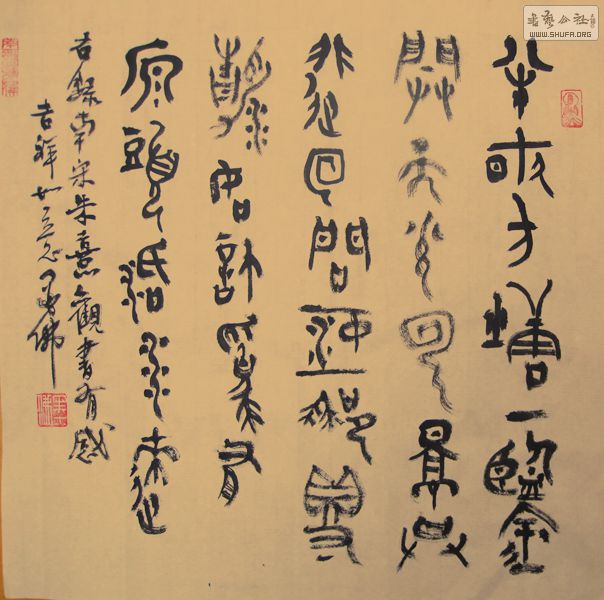 書藝公社
WWW.SHUFA.ORG
半畝方塘一鑑
開天光雲影共
徘徊問渠那得
清如許為有
源頭活水來
吉錄南宋朱熹觀書有感
吉祥如意 佛